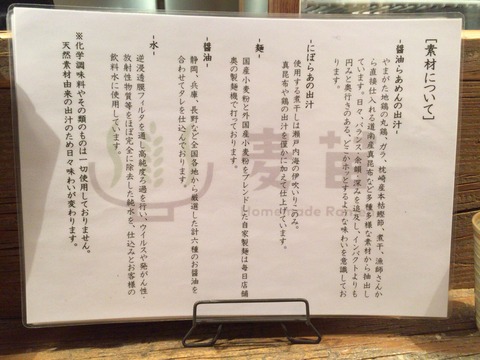 ［素材について］
-醤油らあめんの出汁-
やまがた地鶏の丸鶏、ガラ、枕崎産本枯鰹節、煮干、漁師さんか
ら直接仕入れる道南産真昆布など多種多様な素材から抽出し
ています。日々、バランス、余韻、深みを追及し、インパクトよりも
円みと奥行きのある、どこかホッとするような味わいを意識してお
ります。
-にぼらあの出汁-
使用する煮干しは瀬戸内海の伊吹いりこのみ。
真昆布や鶏の出汁を僅かに加えて仕上げています。
-麺-
国産小麦粉と外国産小麦粉をブレンドした自家製麺は毎日店舗
奥の製麺機で打っております。
-醤油-
静岡、兵庫、長野など全国各地から厳選した計六種のお醤油を
合わせてタレを仕込んでおります。
-水-
逆浸透膜フィルタを通し高純度ろ過を行い、ウイルスや発がん性・
放射性物質等をほぼ完全に除去した純水を、仕込みとお客様の
飲料水に使用しています。
※化学調味料やその類のものは一切使用しておりません。
天然素材由来の出汁のため日々味わいが変わります。
麦苗
Homemade Ra